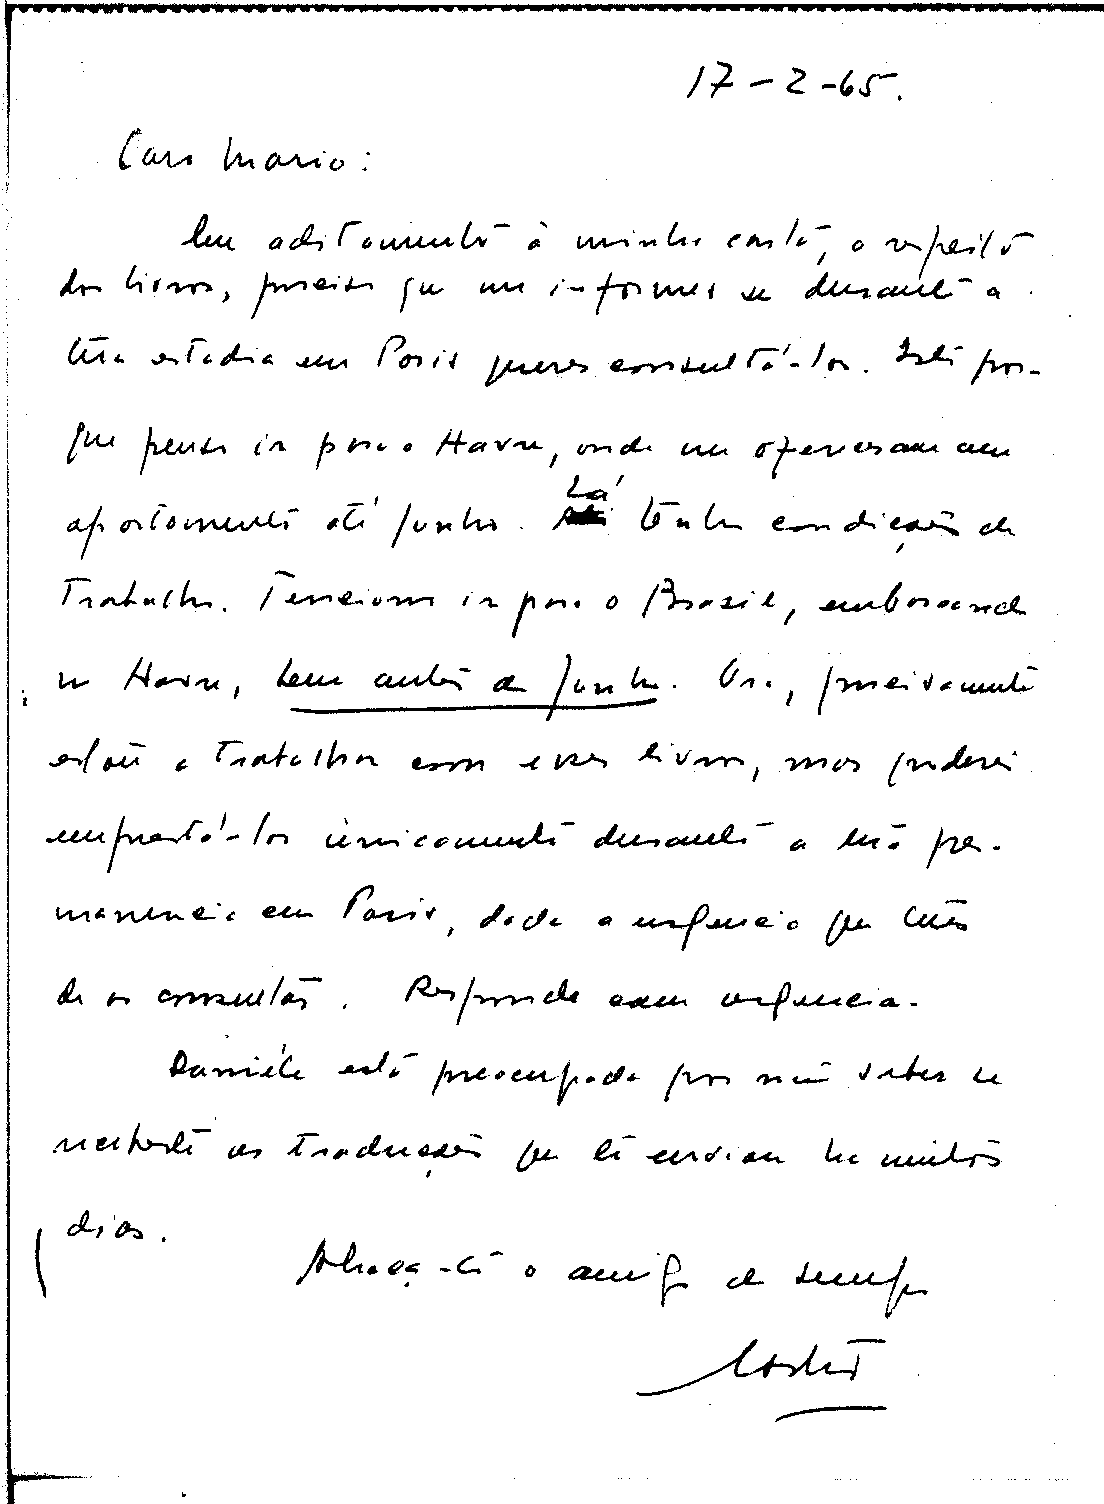 17-2-65.
Caro Mario:
Em aditamento à minha carta, a respeito
dos livros, preciso que me informes se durante a
tua estadia em Paris queres consultá-los. Isto por-
que penso ir para o Havre, onde me ofereceram um
apartamento até junho. Lá tenho condições de
trabalho. Tenciono ir para o Brasil, embarcando
no Havre, bem antes de junho. Ora, precisamente
estou a trabalhar com esses livros, mas poderei
emprestá-los únicamente durante a tua per-
manencia em Paris, dada a urgencia que tens
de os consultar. Responde com urgencia.
Daniéle está preocupada por não saber se
recebeste as traduções que te enviou ha muitos
dias.
Abraça-te o amigo de sempre